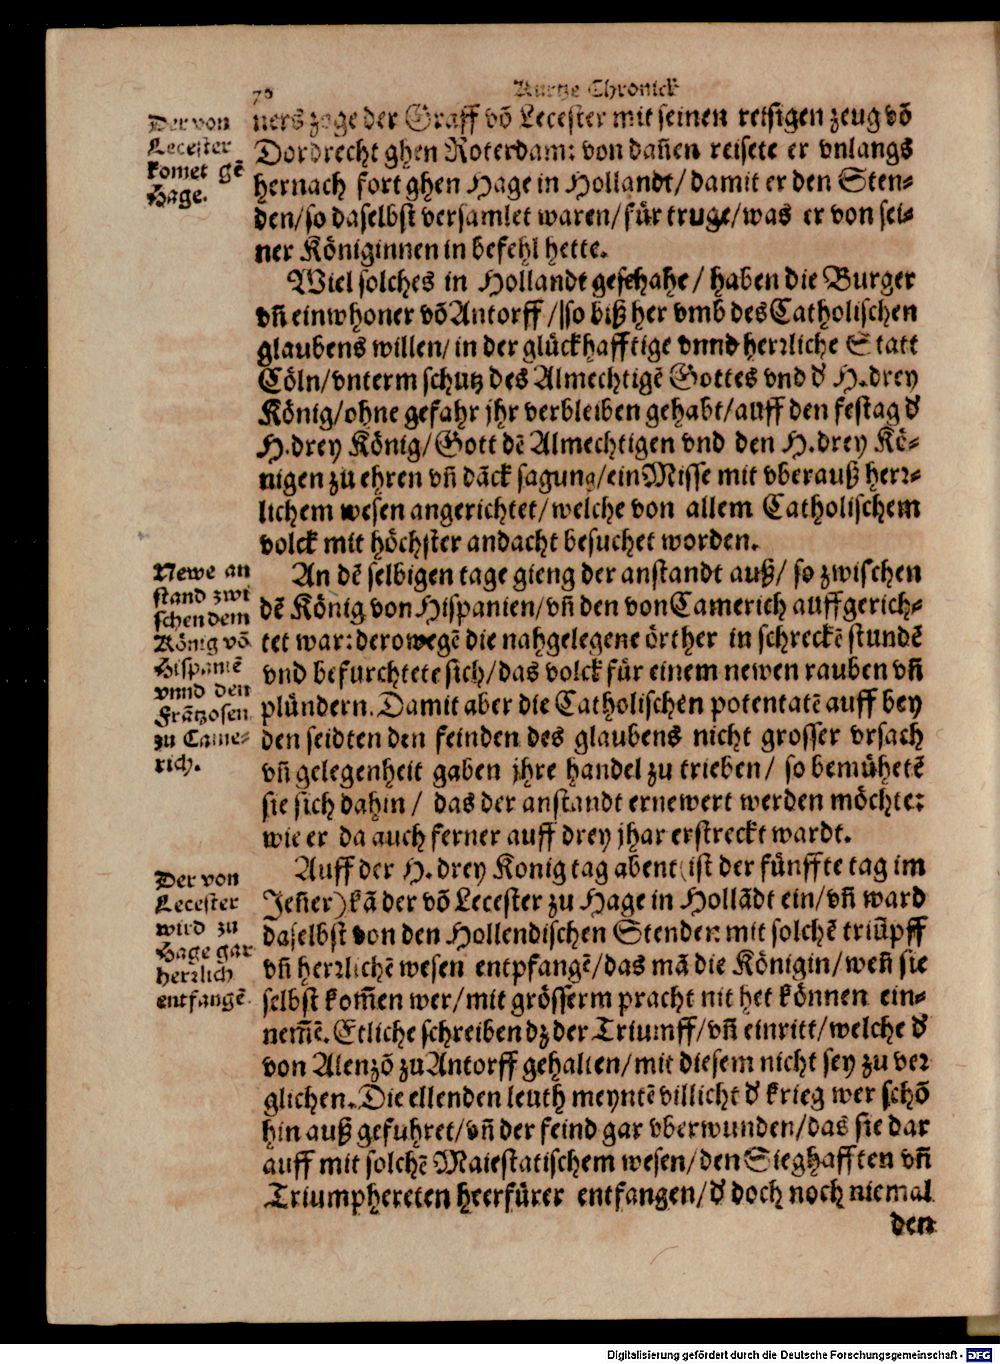 70 Kurtze Chronick
Der von
Lecester
komet gē
Hage.
ners zoge der Graff võ Lecester mit seinen reisigen zeug võ
Dordrecht ghen Roterdam: von dañen reisete er vnlangs
hernach fort ghen Hage in Hollandt/ damit er den Sten⸗
den/ so daselbst versamlet waren/ für truge/ was er von sei⸗
ner Königinnen in befehl hette.
Wiel solches in Hollandt geschahe/ haben die Burger
vñ einwhoner võ Antorff/ so biß her vmb des Catholischen
glaubens willen/ in der glückhafftige vnnd herrliche Statt
Cöln/ vnterm schutz des Almechtigē Gottes vnd d' H. drey
König/ ohne gefahr jhr verbleiben gehabt/ auff den festag d'
H. drey König/ Gott dē Almechtigen vnd den H. drey Kö⸗
nigen zu ehren vñ dāck sagung/ ein Misse mit vberauß herr⸗
lichem wesen angerichtet/ welche von allem Catholischem
volck mit höchster andacht besuchet worden.
Newe an
stand zwi
schen dem
König võ
Hispaniē
vnnd den
Frātzosen
zu Came⸗
rich.
An dē selbigen tage gieng der anstandt auß/ so zwischen
dē König von Hispanien/ vñ den von Camerich auffgerich⸗
tet war: derowegē die nahgelegene örther in schreckē stundē
vnd befurchtete sich/ das volck für einem newen rauben vñ
plündern. Damit aber die Catholischen potentatē auff bey
den seidten den feinden des glaubens nicht grosser vrsach
vñ gelegenheit gaben jhre handel zu trieben/ so bemühetē
sie sich dahin/ das der anstandt ernewert werden möchte:
wie er da auch ferner auff drey jhar erstreckt wardt.
Der von
Lecester
wird zu
Hage gar
herrlich
entfangē.
Auff der H. drey Konig tag abent (ist der fünffte tag im
Jeñer) kā der võ Lecester zu Hage in Hollādt ein/ vñ ward
daselbst von den Hollendischen Stenden mit solchē triūpff
vñ herrlichē wesen entpfangē/ das mā die Königin/ weñ sie
selbst kom̄en wer/ mit grösserm pracht nit het können ein⸗
nem̄ē. Etliche schreiben dz der Triumff/ vñ einritt/ welche d'
von Alenzõ zu Antorff gehalten/ mit diesem nicht sey zu ver
glichen. Die ellenden leuth meyntē villicht d' krieg wer schõ
hin auß gefuhret/ vñ der feind gar vberwunden/ das sie dar
auff mit solchē Maiestatischem wesen/ den Sieghafften vñ
Triumphereten heerfürer entfangen/ d' doch noch niemal
den
Digitalisierung gefördert durch die Deutsche Forschungsgemeinschaft - DFG